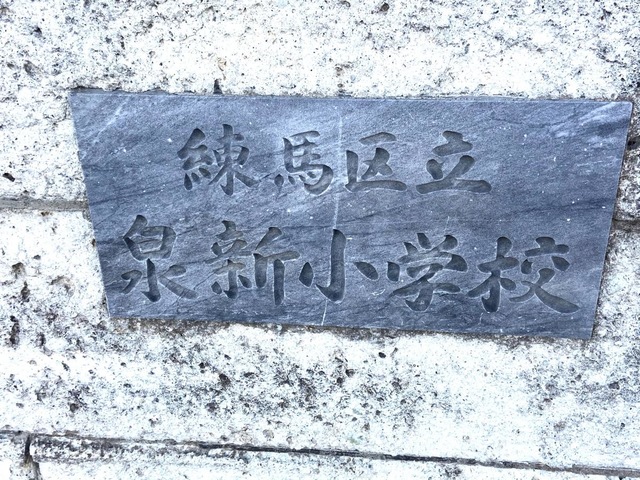 練馬区立
泉新小学校